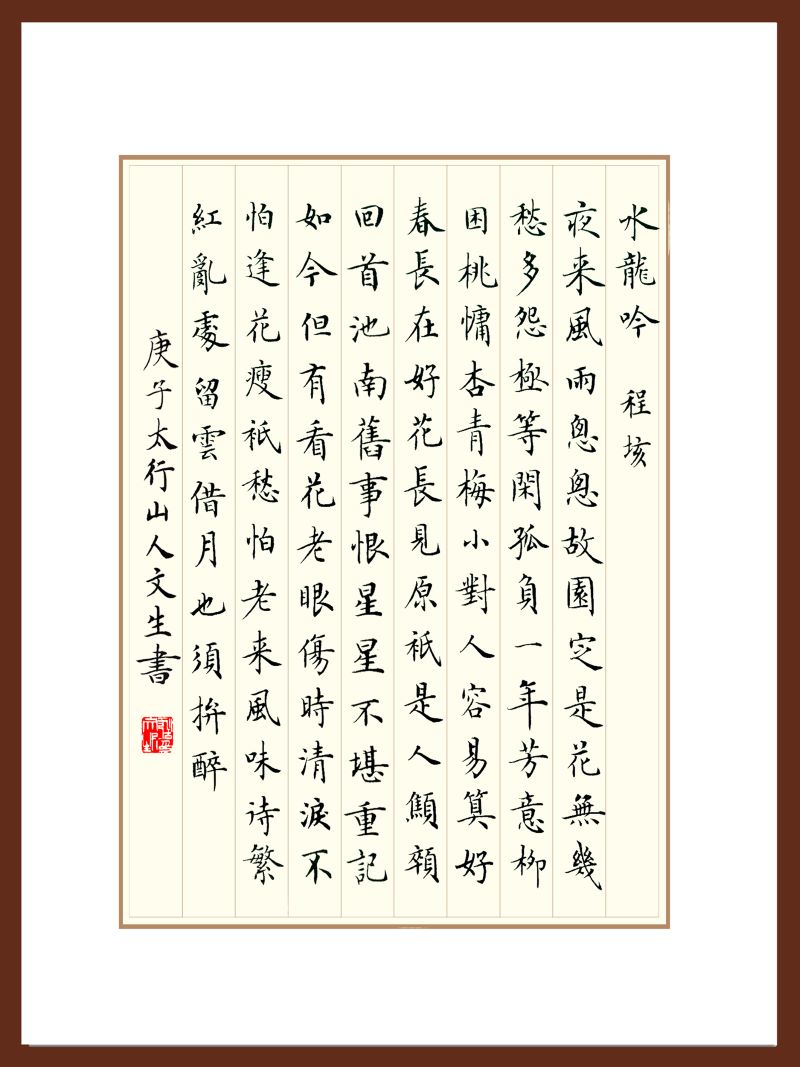 水龍吟 程垓
夜来風雨悤悤故園定是花無幾
愁多怨極等閑孤負一年芳意柳
困桃慵杏青梅小對人容易算好
春長在好花長見原祇是人顦顇
回首池南舊事恨星星不堪重記
如今但有看花老眼傷時清淚不
怕逢花瘦祇愁怕老来風味待繁
紅亂處留雲借月也須拚醉
庚子太行山人文生書